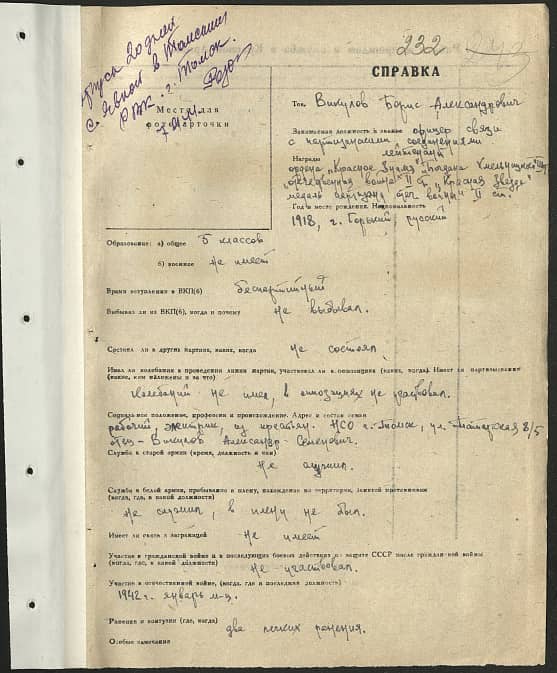 232
СПРАВКА
Место для
фотокарточки
Тов. Викулов Борис Александрович
Занимаемая должность и звание офицер связи
с партизанскими соединениями
лейтенант
Награды
ордена "Красное Знамя" "Богдана Хмельницкого
"отечественная война" II ст, "Красная Звезда"
медаль партизану отеч войны" II ст.
Год и место рождения. Национальность
1918, г. Горький русский
Образование: а) общее 5 классов
б) военное Не имеет
Время вступления в ВКП(б) беспартийный
Выбывал ли из ВКП(б), когда и почему Не выбывал.
Состоял ли в других партиях, каких, когда не состоял
Имел ли колебания в проведении линии партии, участвовал ли в оппозициях (каких, когда). Имеет ли партвзыскания
(какие, кем наложены и за что)
Колебаний не имел, в оппозициях не участвовал.
Социальное положение, профессия и происхождение. Адрес и состав семьи
рабочий, электрик, из крестьян. НСО г. Томск, ул. 8/5
отец - Викулов Александр Семенович.
Служба в старой армии (время, должность и чин)
Не служил.
Служба в белой армии, пребывание в плену, нахождение на территории, занятой противником
(когда, где, в какой должности)
Не служил, в плену не был.
Имеет ли связь с заграницей Не имеет
Участие в гражданской войне и в последующих боевых действиях по защите СССР после гражданской войны
(когда, где, в какой должности) Не участвовал.
Участие в отечественной войне, (когда, где и последняя должность)
1942 г. январь м-ц.
Ранения и контузии (где, когда) два легких ранения.
Особые замечания